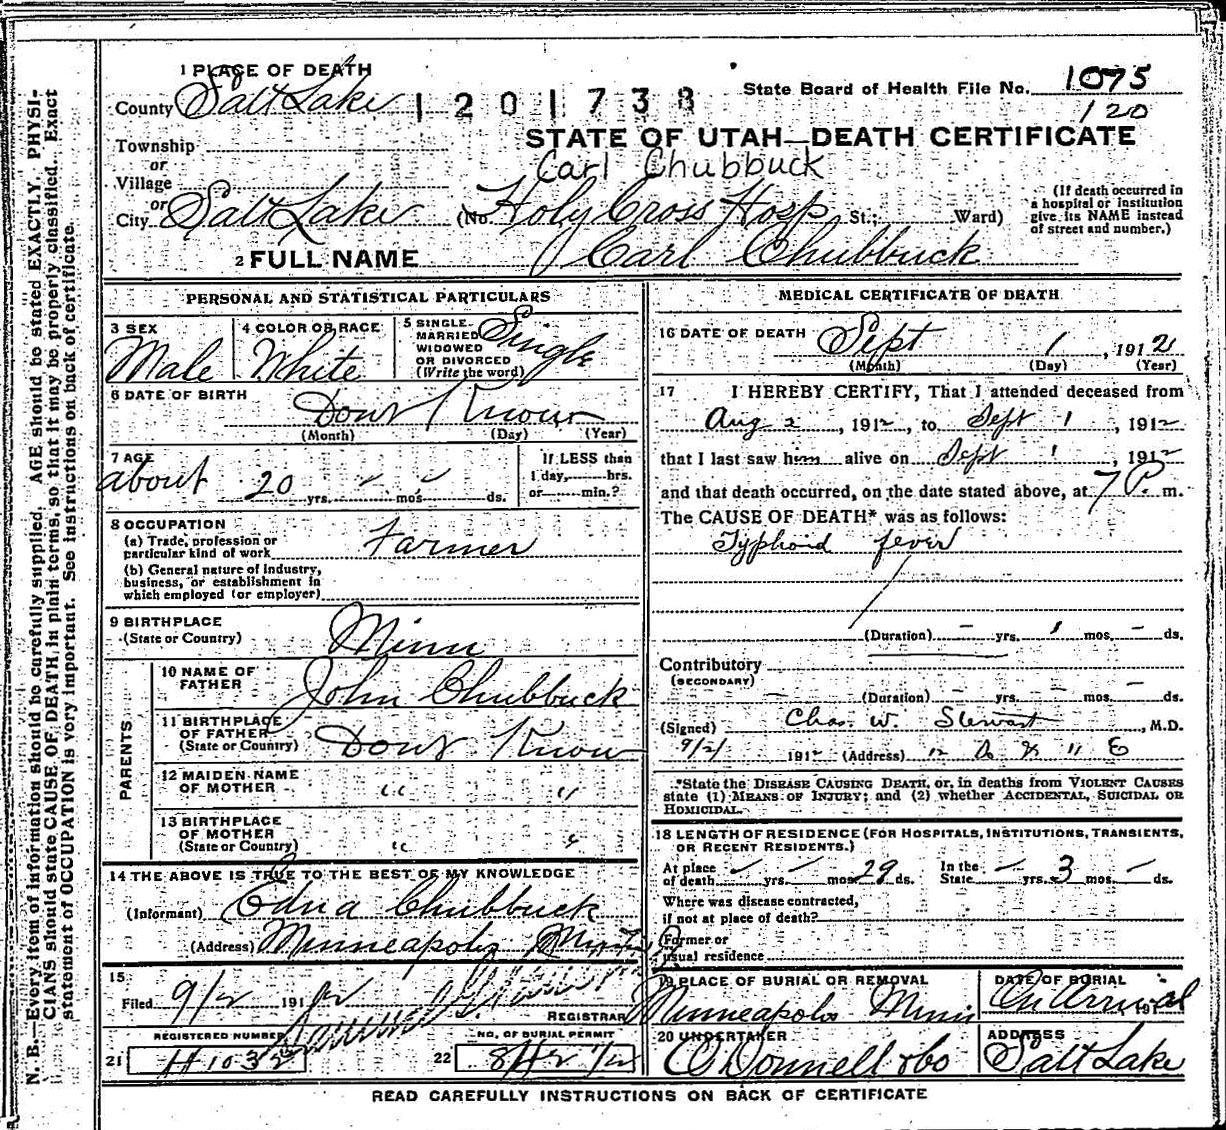 1 PLACE OF DEATH
County Salt Lake
1201738
State Board of Health File No. 1075
120
STATE OF UTAH—DEATH CERTIFICATE
Township
or
Village
or
Carl Chubbuck
City Salt Lake (No. Holy Cross Hosp St.; Ward)
(If death occurred in a hospital or institution give its NAME instead of street and number.)
2 FULL NAME Carl Chubbuck
PERSONAL AND STATISTICAL PARTICULARS
3 SEX Male
4 COLOR OR RACE White
5 SINGLE, MARRIED, WIDOWED OR DIVORCED (Write the word) Single
6 DATE OF BIRTH Dont Know
(Month) (Day) (Year)
7 AGE about 20 yrs. mos ds.
If LESS than 1 day, hrs. or min.?
8 OCCUPATION
(a) Trade, profession or particular kind of work Farmer
(b) General nature of industry, business, or establishment in which employed (or employer)
9 BIRTHPLACE
(State or Country) Minn
PARENTS
10 NAME OF FATHER John Chubbuck
11 BIRTHPLACE OF FATHER (State or Country) Dont Know
12 MAIDEN NAME OF MOTHER " "
13 BIRTHPLACE OF MOTHER (State or Country) " "
14 THE ABOVE IS TRUE TO THE BEST OF MY KNOWLEDGE
(Informant) Edna Chubbuck
(Address) Minneapolis Minn
15
Filed 9/2 1912
REGISTRAR
REGISTERED NUMBER
21 H 1032
NO. OF BURIAL PERMIT
22
MEDICAL CERTIFICATE OF DEATH
16 DATE OF DEATH Sept 1, 1912
(Month) (Day) (Year)
17 I HEREBY CERTIFY, That I attended deceased from
Aug 2, 1912, to Sept 1, 1912
that I last saw him alive on Sept 1, 1912
and that death occurred, on the date stated above, at 7 P. m.
The CAUSE OF DEATH* was as follows:
Typhoid fever
(Duration) – yrs. 1 mos – ds.
Contributory
(SECONDARY)
(Duration) – yrs. – mos – ds.
(Signed) Chas. W. Stewart, M.D.
9/2/ 1912 (Address)
*State the DISEASE CAUSING DEATH, or, in deaths from VIOLENT CAUSES state (1) MEANS OF INJURY; and (2) whether ACCIDENTAL, SUICIDAL OR HOMICIDAL.
18 LENGTH OF RESIDENCE (FOR HOSPITALS, INSTITUTIONS, TRANSIENTS, OR RECENT RESIDENTS.)
At place of death yrs. mos 29 ds. In the State yrs. 3 mos ds.
Where was disease contracted,
if not at place of death?
Former or
usual residence
19 PLACE OF BURIAL OR REMOVAL Minneapolis Minn
DATE OF BURIAL On Arrival, 191
20 UNDERTAKER O Donnell & Co
ADDRESS Salt Lake
READ CAREFULLY INSTRUCTIONS ON BACK OF CERTIFICATE
N. B.—Every item of information should be carefully supplied. AGE should be stated EXACTLY. PHYSI-
CIANS should state CAUSE OF DEATH in plain terms, so that it may be properly classified. Exact
statement of OCCUPATION is very important. See instructions on back of certificate.